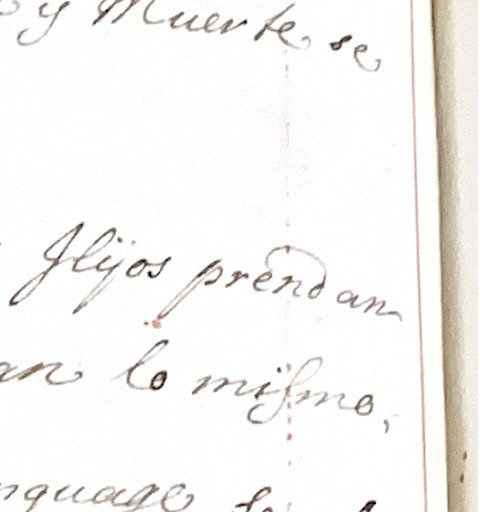 y Muerte se
Hijos prendan
an lo miſmo,
nguage